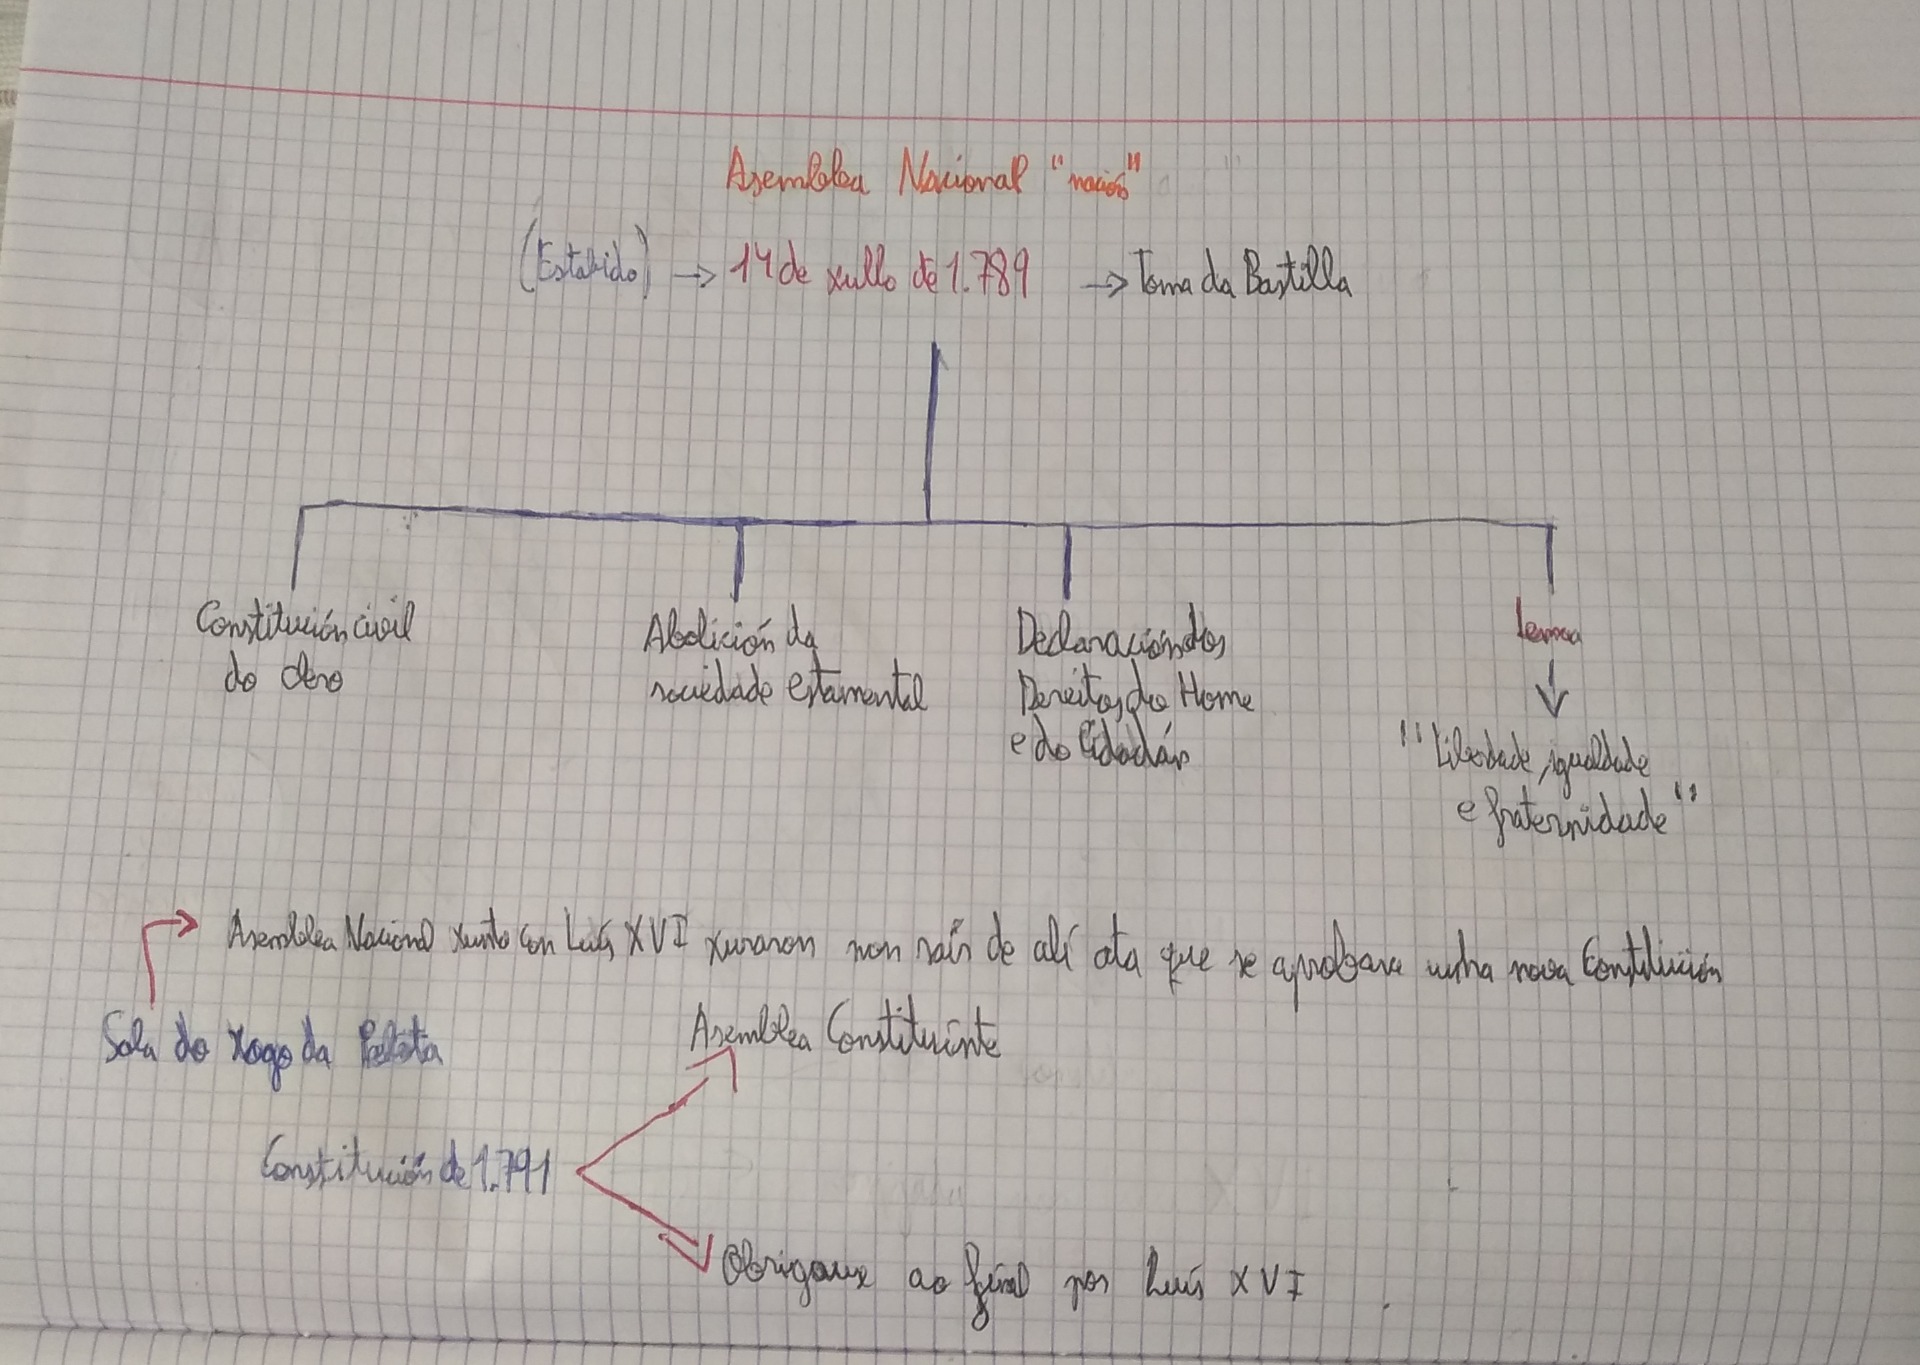 Asemblea Nacional "nación"
(Estalido) → 14 de xullo de 1.789 → Toma da Bastilla
Constitución civil
do clero
Abolición da
sociedade estamental
Declaración dos
Dereitos do Home
e do Cidadán
lema
"Liberdade, igualdade
e fraternidade"
Asemblea Nacional xunto con Luís XVI xuraron non saír de alí ata que se aprobara unha nova Constitución
Sala do Xogo da Pelota
Asemblea Constituinte
Constitución de 1.791
ao final por Luís XVI